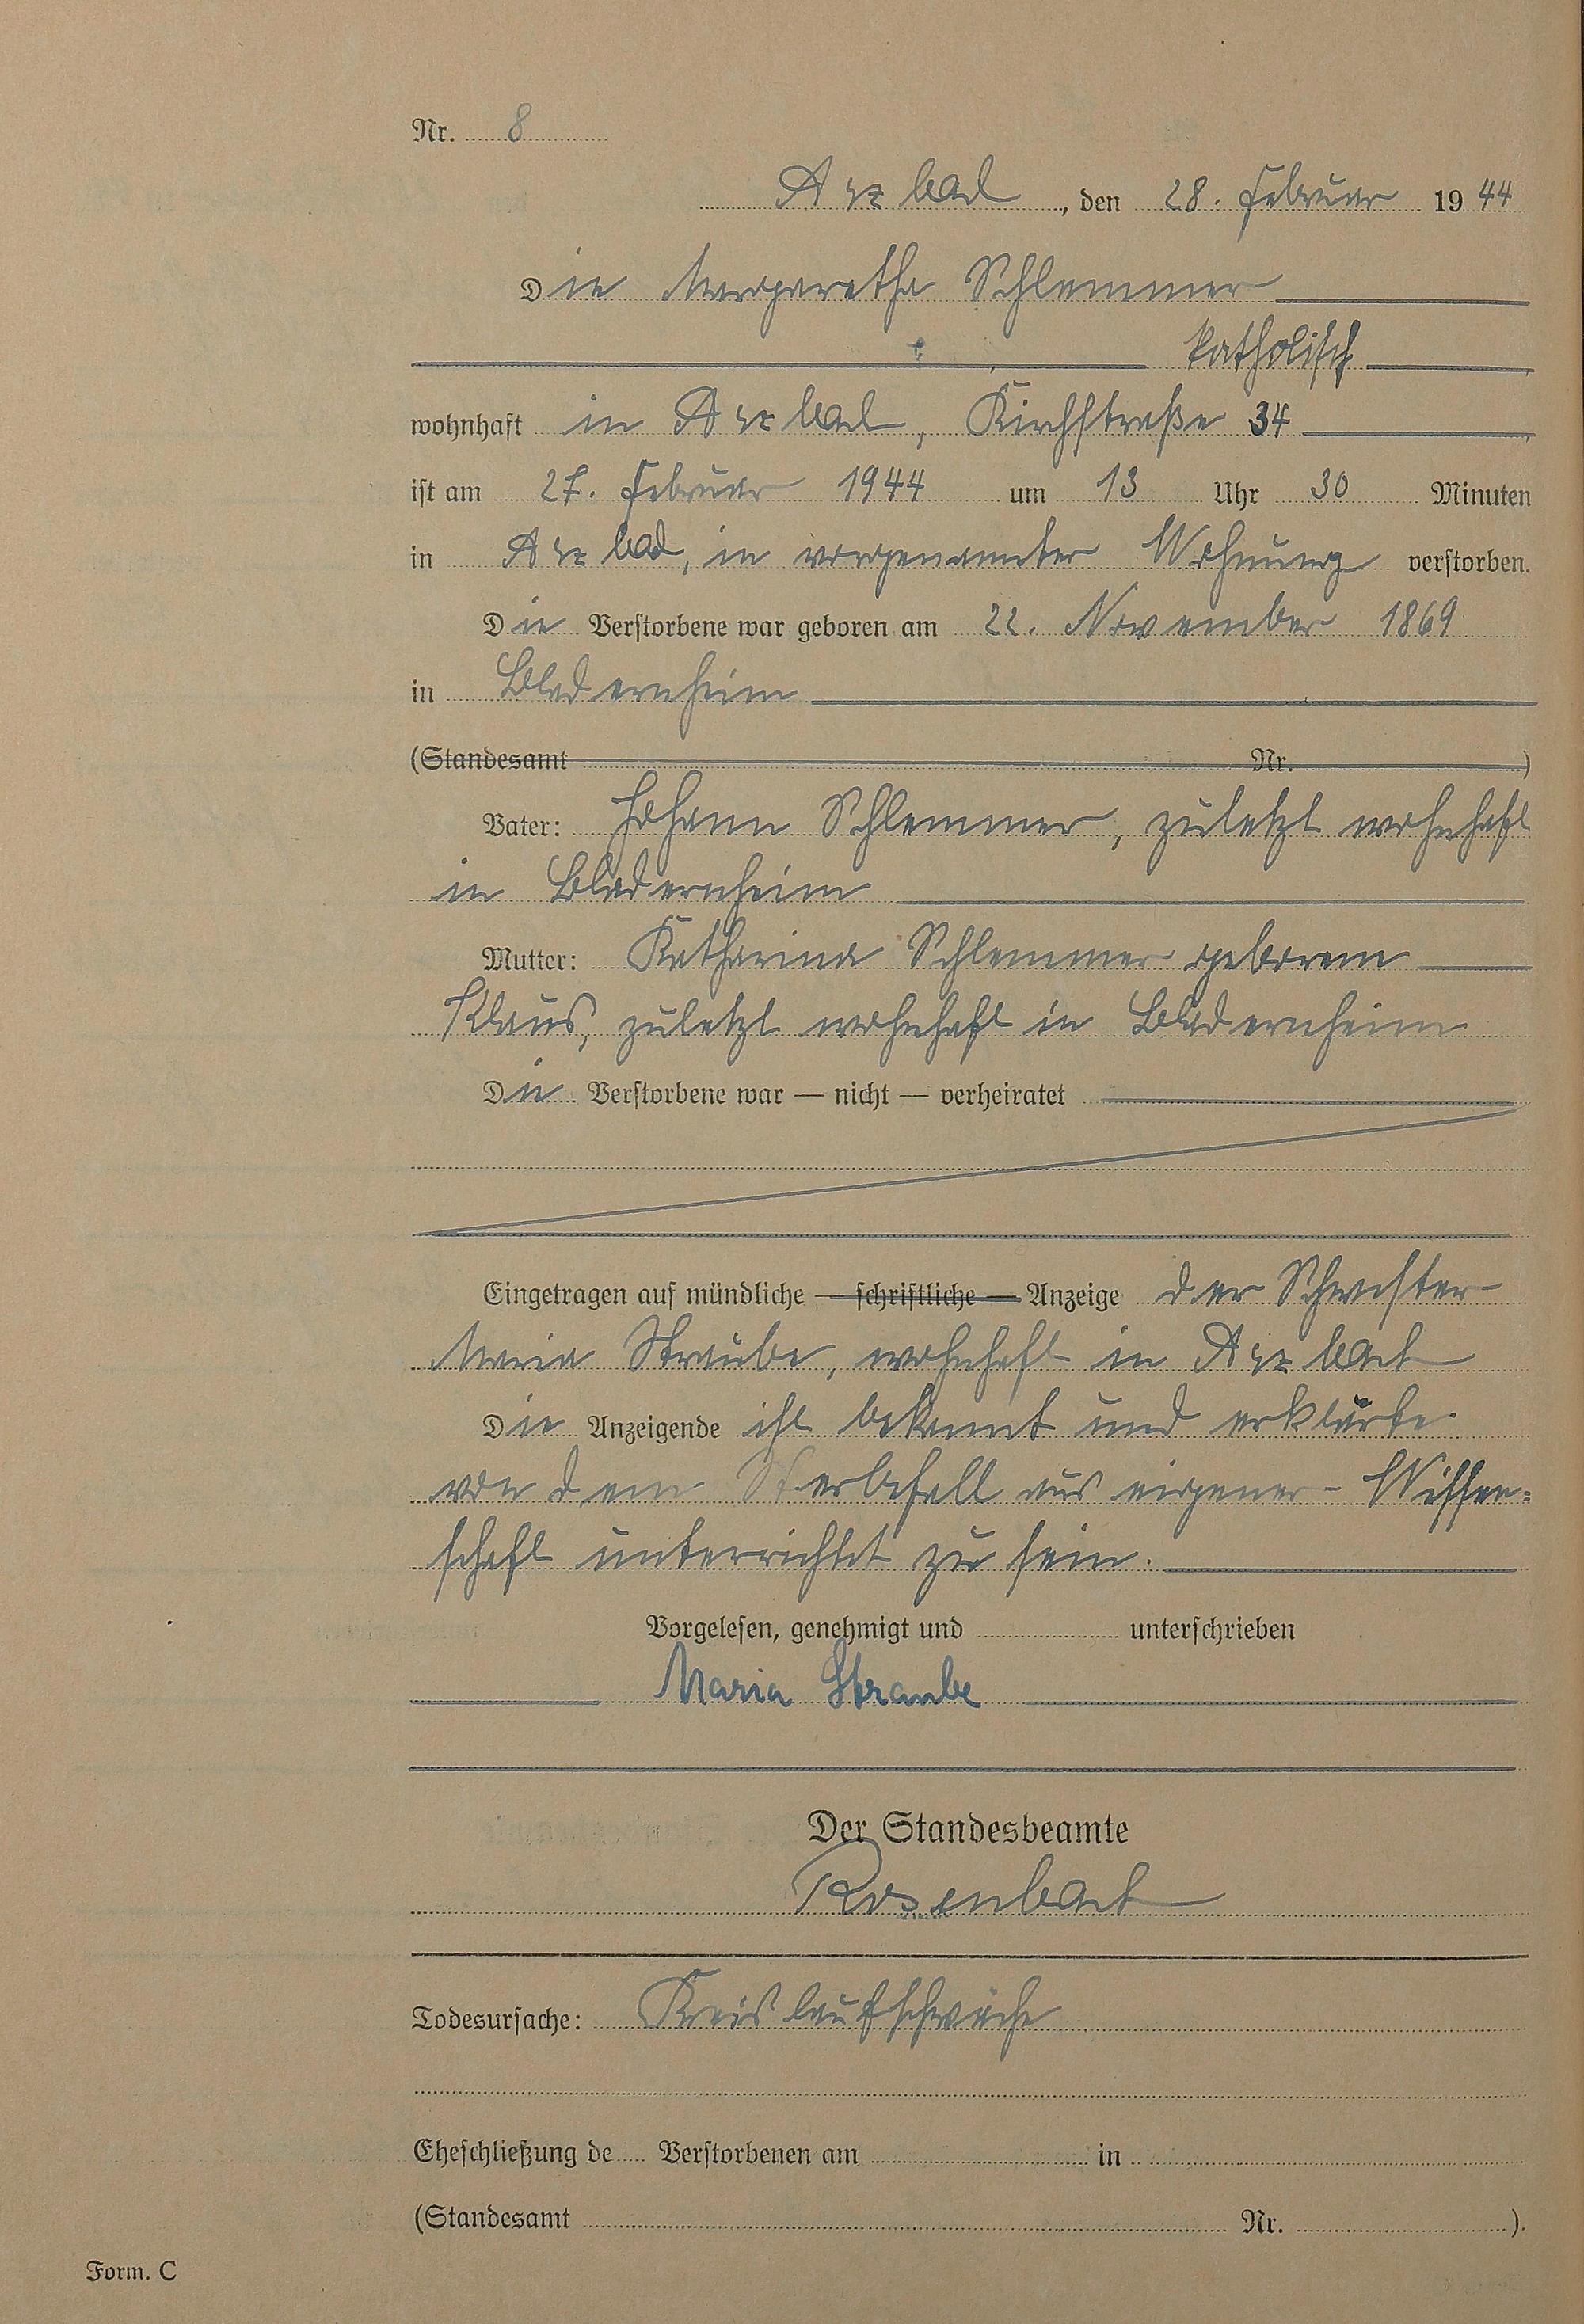 Nr. 8
Arzbach, den 28. Februar 1944
Die Margaretha Schlemmer
katholisch
wohnhaft in Arzbach, Kirchstraße 34
ist am 27. Februar 1944 um 13 Uhr 30 Minuten
in Arzbach, in vorgenannter Wohnung verstorben.
Die Verstorbene war geboren am 22. November 1869
in Bladernheim
(Standesamt Nr. )
Vater: Johann Schlemmer, zuletzt wohnhaft
in Bladernheim
Mutter: Katharina Schlemmer geborene
Klaus, zuletzt wohnhaft in Bladernheim
Die Verstorbene war — nicht — verheiratet
Eingetragen auf mündliche — schriftliche — Anzeige der Schwester
Maria Straube, wohnhaft in Arzbach
Die Anzeigende ist bekannt und erklärte
von dem Sterbefall aus eigener Wissen-
schaft unterrichtet zu sein.
Vorgelesen, genehmigt und unterschrieben
Maria Straube
Der Standesbeamte
Rosenbach
Todesursache: Kreislaufschwäche
Eheschließung de Verstorbenen am in
(Standesamt Nr. ).
Form. C